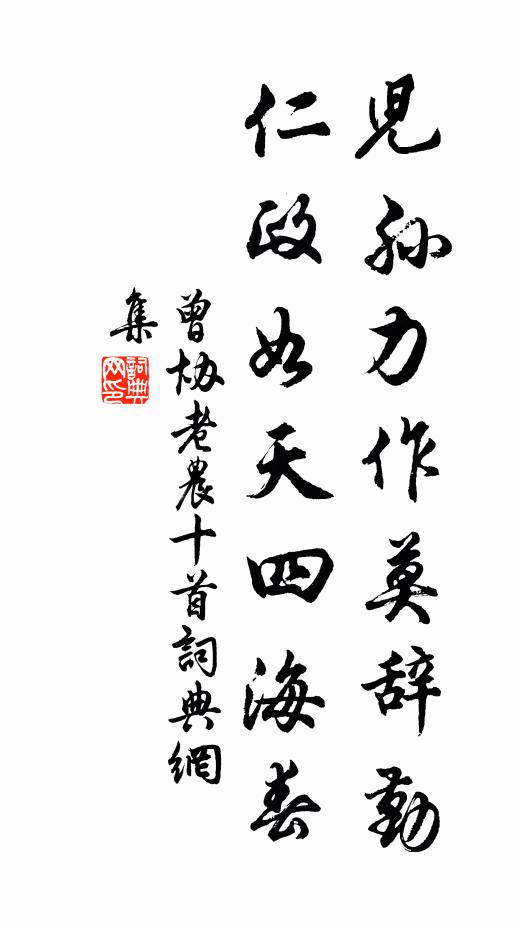 児孫力作莫辞勤
仁政如天四海春
曾協老農十首詞典網
集
詞典
网印